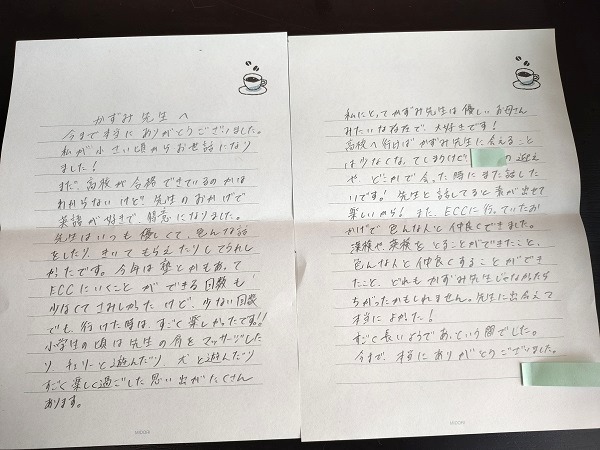 かずみ先生へ
今まで本当にありがとうございました。
私が小さい頃からお世話になり
ました！
まだ、高校が合格できているのかは
わからないけど、先生のおかげで
英語が好きで、得意になりました。
先生はいつも優しくて、色んな話
をしたり、きいてもらえたりしてうれし
かったです。今年は塾とかもあって
ECCにいくことができる回数も
少なくてさみしかったけど、少ない回数
でも、行けた時は、すごく楽しかったです!!
小学生の頃は先生の肩をマッサージした
り チェリーと遊んだり 犬と遊んだり
すごく楽しく過ごした思い出がたくさん
あります。
MIDORI
私にとってかずみ先生は優しいお母さん
みたいな存在で、大好きです！
高校へ行けば かずみ先生に会えること
は少なくなってしまうけど の迎え
や、どこかで会った時にまた話したい
です！先生と話してると素が出せて
楽しいから！また、ECCに行っていたお
かげで色んな人と仲良くできました。
漢検や英検をとることができたこと、
色んな人と仲良くすることができ
たこと、どれもかずみ先生じゃなかったら
ちがったかもしれません。先生に出会えて
本当によかた！
すごく長いようであっという間でした。
今まで、本当にありがとうございました。
MIDORI